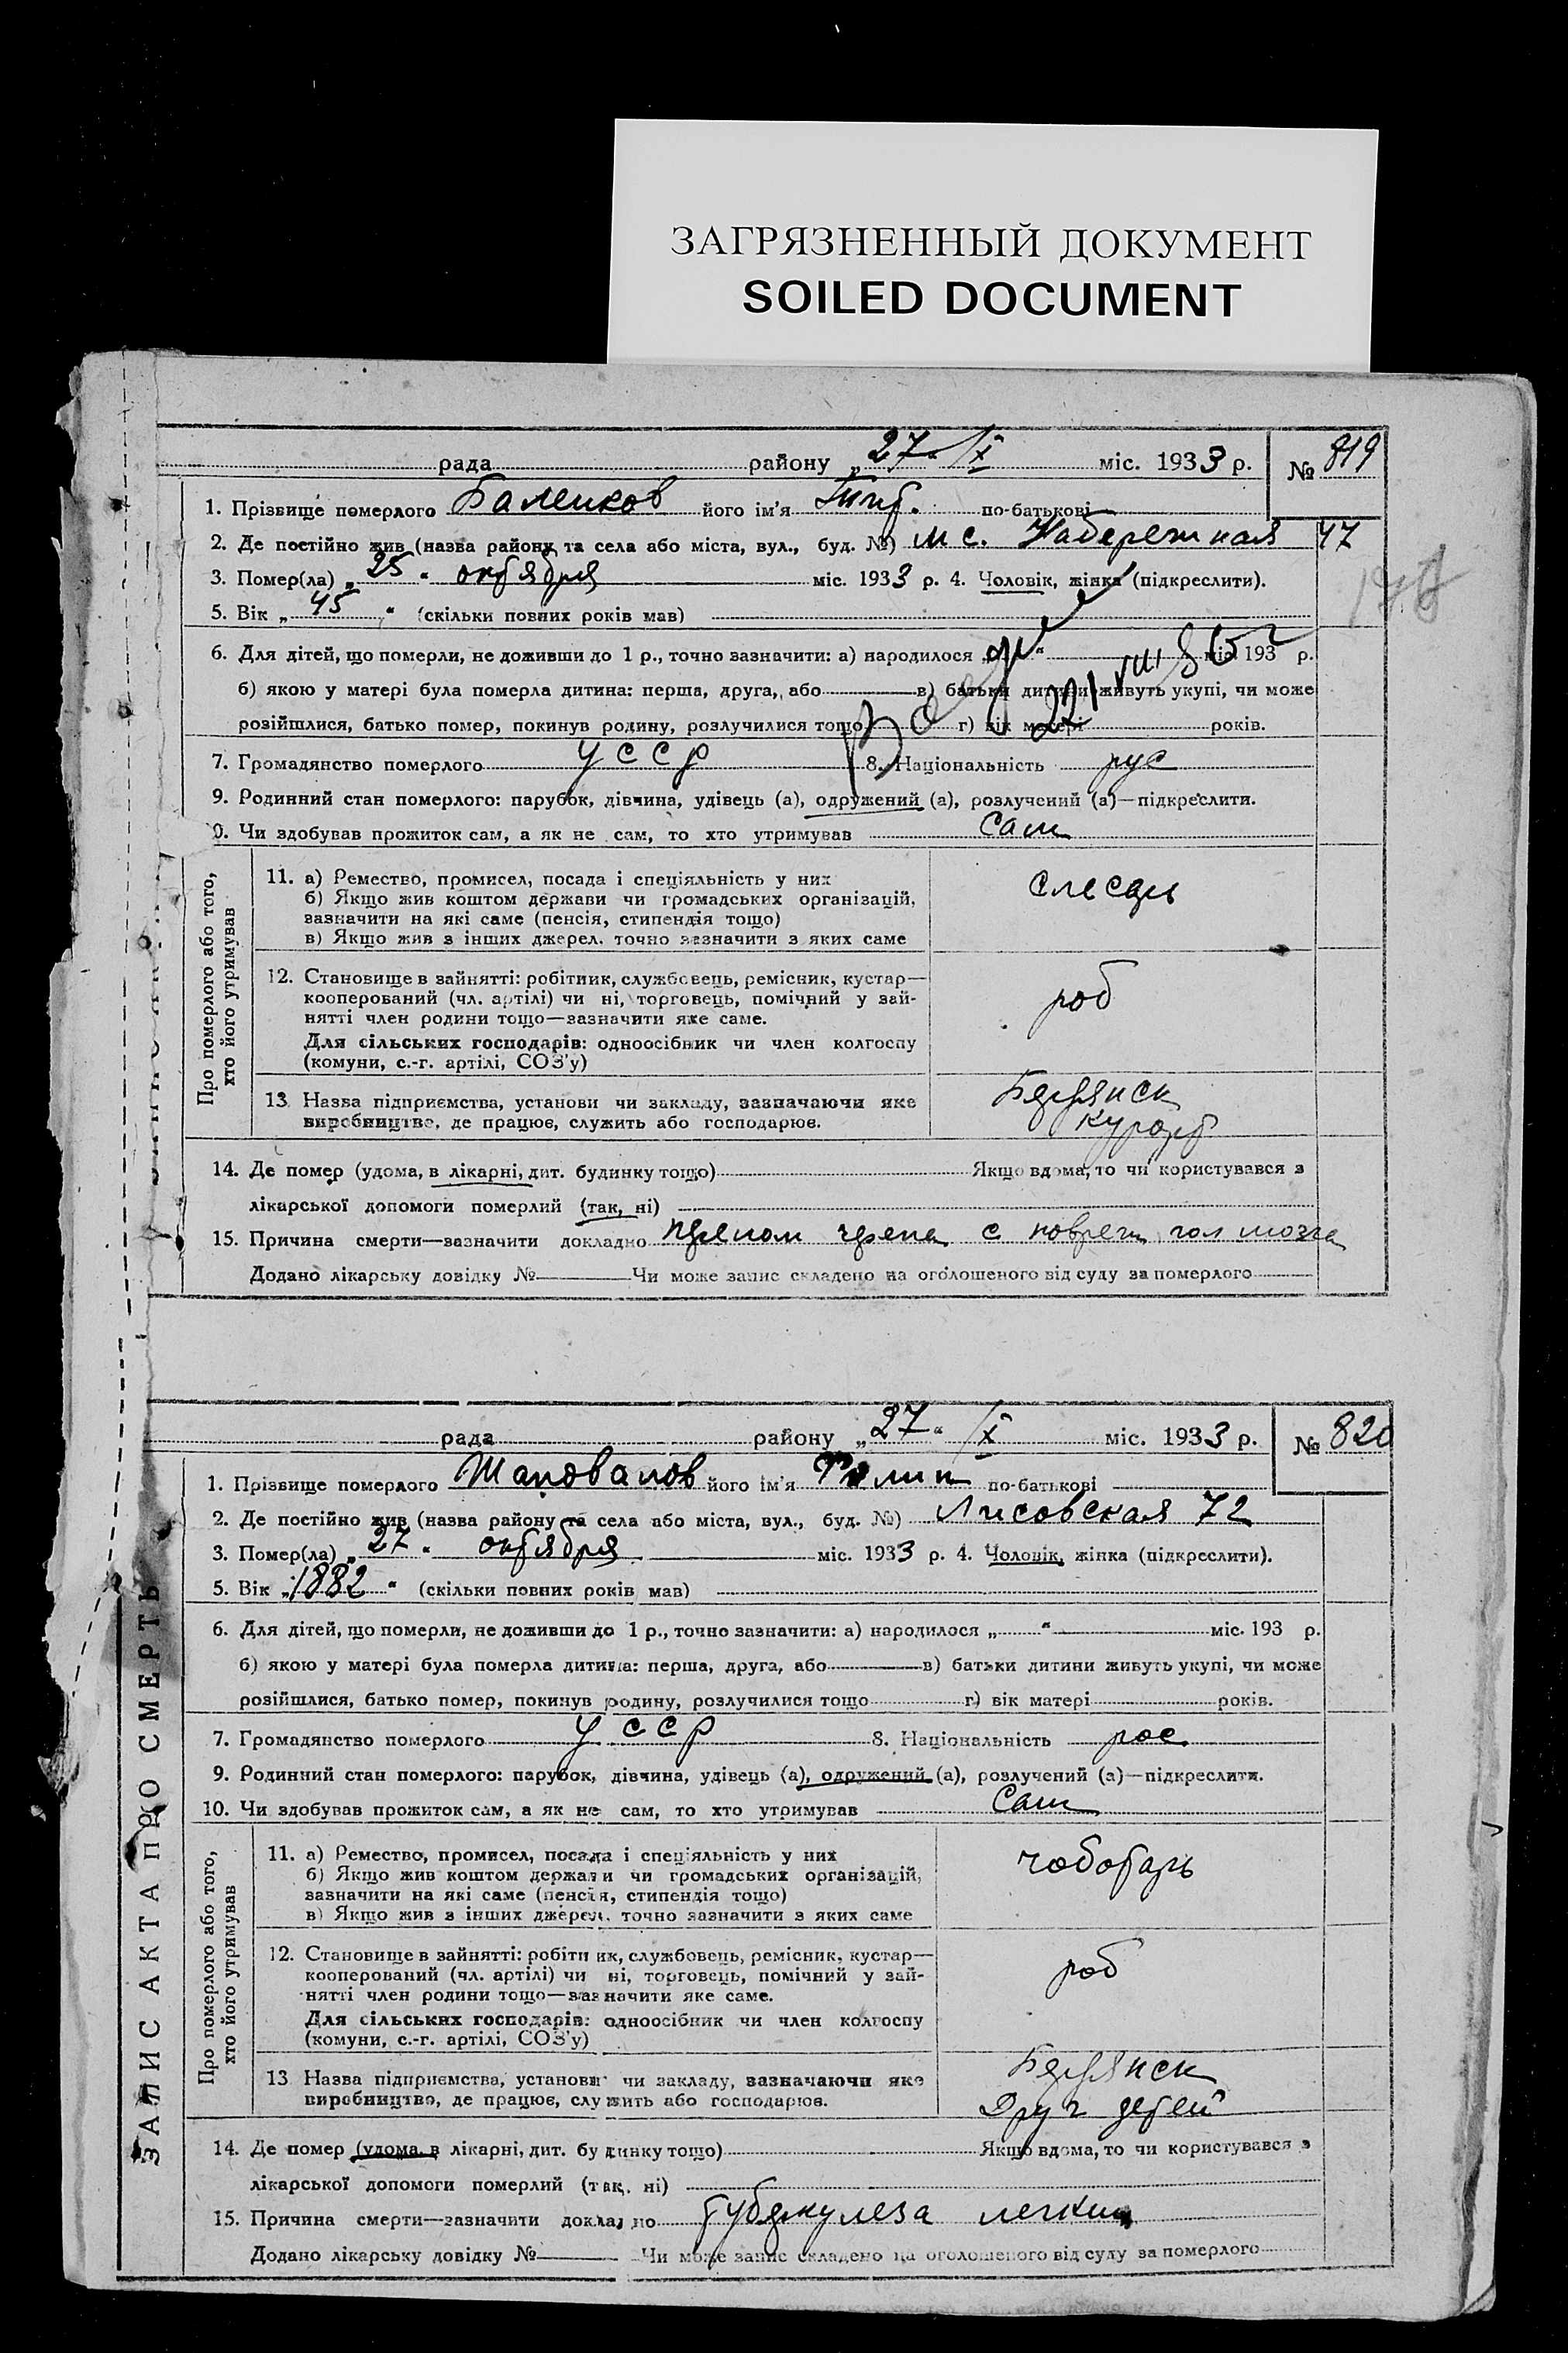 ЗАГРЯЗНЕННЫЙ ДОКУМЕНТ
SOILED DOCUMENT
рада району „27“ /X міс. 1933 р. № 819
1. Прізвище померлого Баленков його ім'я по-батькові
2. Де постійно жив (назва району та села або міста, вул., буд. №) м с. Набережная 47
3. Помер(ла) „25“ октября міс. 1933 р. 4. Чоловік, жінка (підкреслити).
5. Вік „45“ (скільки повних років мав)
6. Для дітей, що померли, не доживши до 1 р., точно зазначити: а) народилося „ “ міс. 193 р.
б) якою у матері була померла дитина: перша, друга, або в) батьки дитини живуть укупі, чи може
розійшлися, батько помер, покинув родину, розлучилися тощо г) вік матері років.
22/VIII 85 г
7. Громадянство померлого УССР 8. Національність рус
9. Родинний стан померлого: парубок, дівчина, удівець (а), одружений (а), розлучений (а)—підкреслити.
10. Чи здобував прожиток сам, а як не сам, то хто утримував сам
Про померлого або того,
хто його утримував
11. а) Ремество, промисел, посада і спеціяльність у них
б) Якщо жив коштом держави чи громадських організацій,
зазначити на які саме (пенсія, стипендія тощо)
в) Якщо жив з інших джерел, точно зазначити з яких саме
слесарь
12. Становище в зайнятті: робітник, службовець, ремісник, кустар—
кооперований (чл. артілі) чи ні, торговець, помічний у зай-
нятті член родини тощо—зазначити яке саме.
Для сільських господарів: одноосібник чи член колгоспу
(комуни, с.-г. артілі, СОЗ'у)
роб
13 Назва підприємства, установи чи закладу, зазначаючи яке
виробництво, де працює, служить або господарює.
Бердянск
курорт
14. Де помер (удома, в лікарні, дит. будинку тощо) Якщо вдома, то чи користувався з
лікарської допомоги померлий (так, ні)
15. Причина смерти—зазначити докладно перелом черепа с повреж гол мозга
Додано лікарську довідку № Чи може запис складено на оголошеного від суду за померлого
ЗАПИС АКТА ПРО СМЕРТЬ
рада району „27“ /X міс. 1933 р. № 820
1. Прізвище померлого Шаповалов його ім'я Филип по-батькові
2. Де постійно жив (назва району та села або міста, вул., буд. №) Лисовская 72
3. Помер(ла) „27“ октября міс. 1933 р. 4. Чоловік, жінка (підкреслити).
5. Вік „1882“ (скільки повних років мав)
6. Для дітей, що померли, не доживши до 1 р., точно зазначити: а) народилося „ “ міс. 193 р.
б) якою у матері була померла дитина: перша, друга, або в) батьки дитини живуть укупі, чи може
розійшлися, батько помер, покинув родину, розлучилися тощо г) вік матері років.
7. Громадянство померлого УССР 8. Національність рос
9. Родинний стан померлого: парубок, дівчина, удівець (а), одружений (а), розлучений (а)—підкреслити.
10. Чи здобував прожиток сам, а як не сам, то хто утримував сам
Про померлого або того,
хто його утримував
11. а) Ремество, промисел, посада і спеціяльність у них
б) Якщо жив коштом держави чи громадських організацій,
зазначити на які саме (пенсія, стипендія тощо)
в) Якщо жив з інших джерел, точно зазначити з яких саме
чоботарь
12. Становище в зайнятті: робітник, службовець, ремісник, кустар—
кооперований (чл. артілі) чи ні, торговець, помічний у зай-
нятті член родини тощо—зазначити яке саме.
Для сільських господарів: одноосібник чи член колгоспу
(комуни, с.-г. артілі, СОЗ'у)
роб
13 Назва підприємства, установи чи закладу, зазначаючи яке
виробництво, де працює, служить або господарює.
Бердянск
Друг детей
14. Де помер (удома, в лікарні, дит. будинку тощо) Якщо вдома, то чи користувався з
лікарської допомоги померлий (так, ні)
15. Причина смерти—зазначити докладно туберкулеза легких
Додано лікарську довідку № Чи може запис складено на оголошеного від суду за померлого